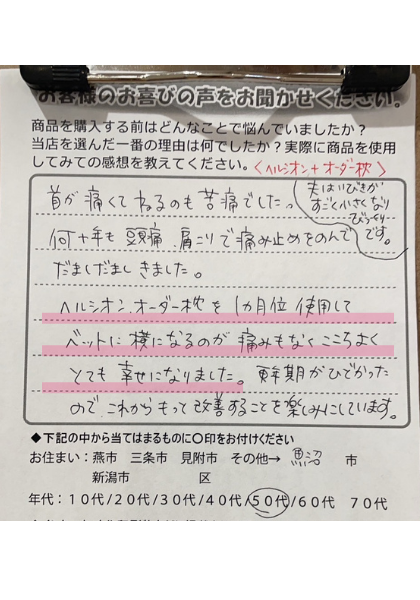 お客様のお喜びの声をお聞かせください。
商品を購入する前はどんなことで悩んでいましたか?
当店を選んだ一番の理由は何でしたか?実際に商品を使用
してみての感想を教えてください。
<ヘルシオン+オーダー枕>
首が痛くてねるのも苦痛でした。
夫はいびきが
すごく小さくなり
びっくり
です。
何十年も頭痛 肩こりで痛み止めをのんで
だましだましきました。
ヘルシオン、オーダー枕を1カ月位使用して
ベットに横になるのが痛みもなくこころよく
とても幸せになりました。更年期がひどかった
のでこれからもって改善することを楽しみにしています。
◆下記の中から当てはまるものに○印をお付けください
お住まい:燕市 三条市 見附市 その他→ 魚沼 市
新潟市 区
年代:10代/20代/30代/40代/50代/60代 70代